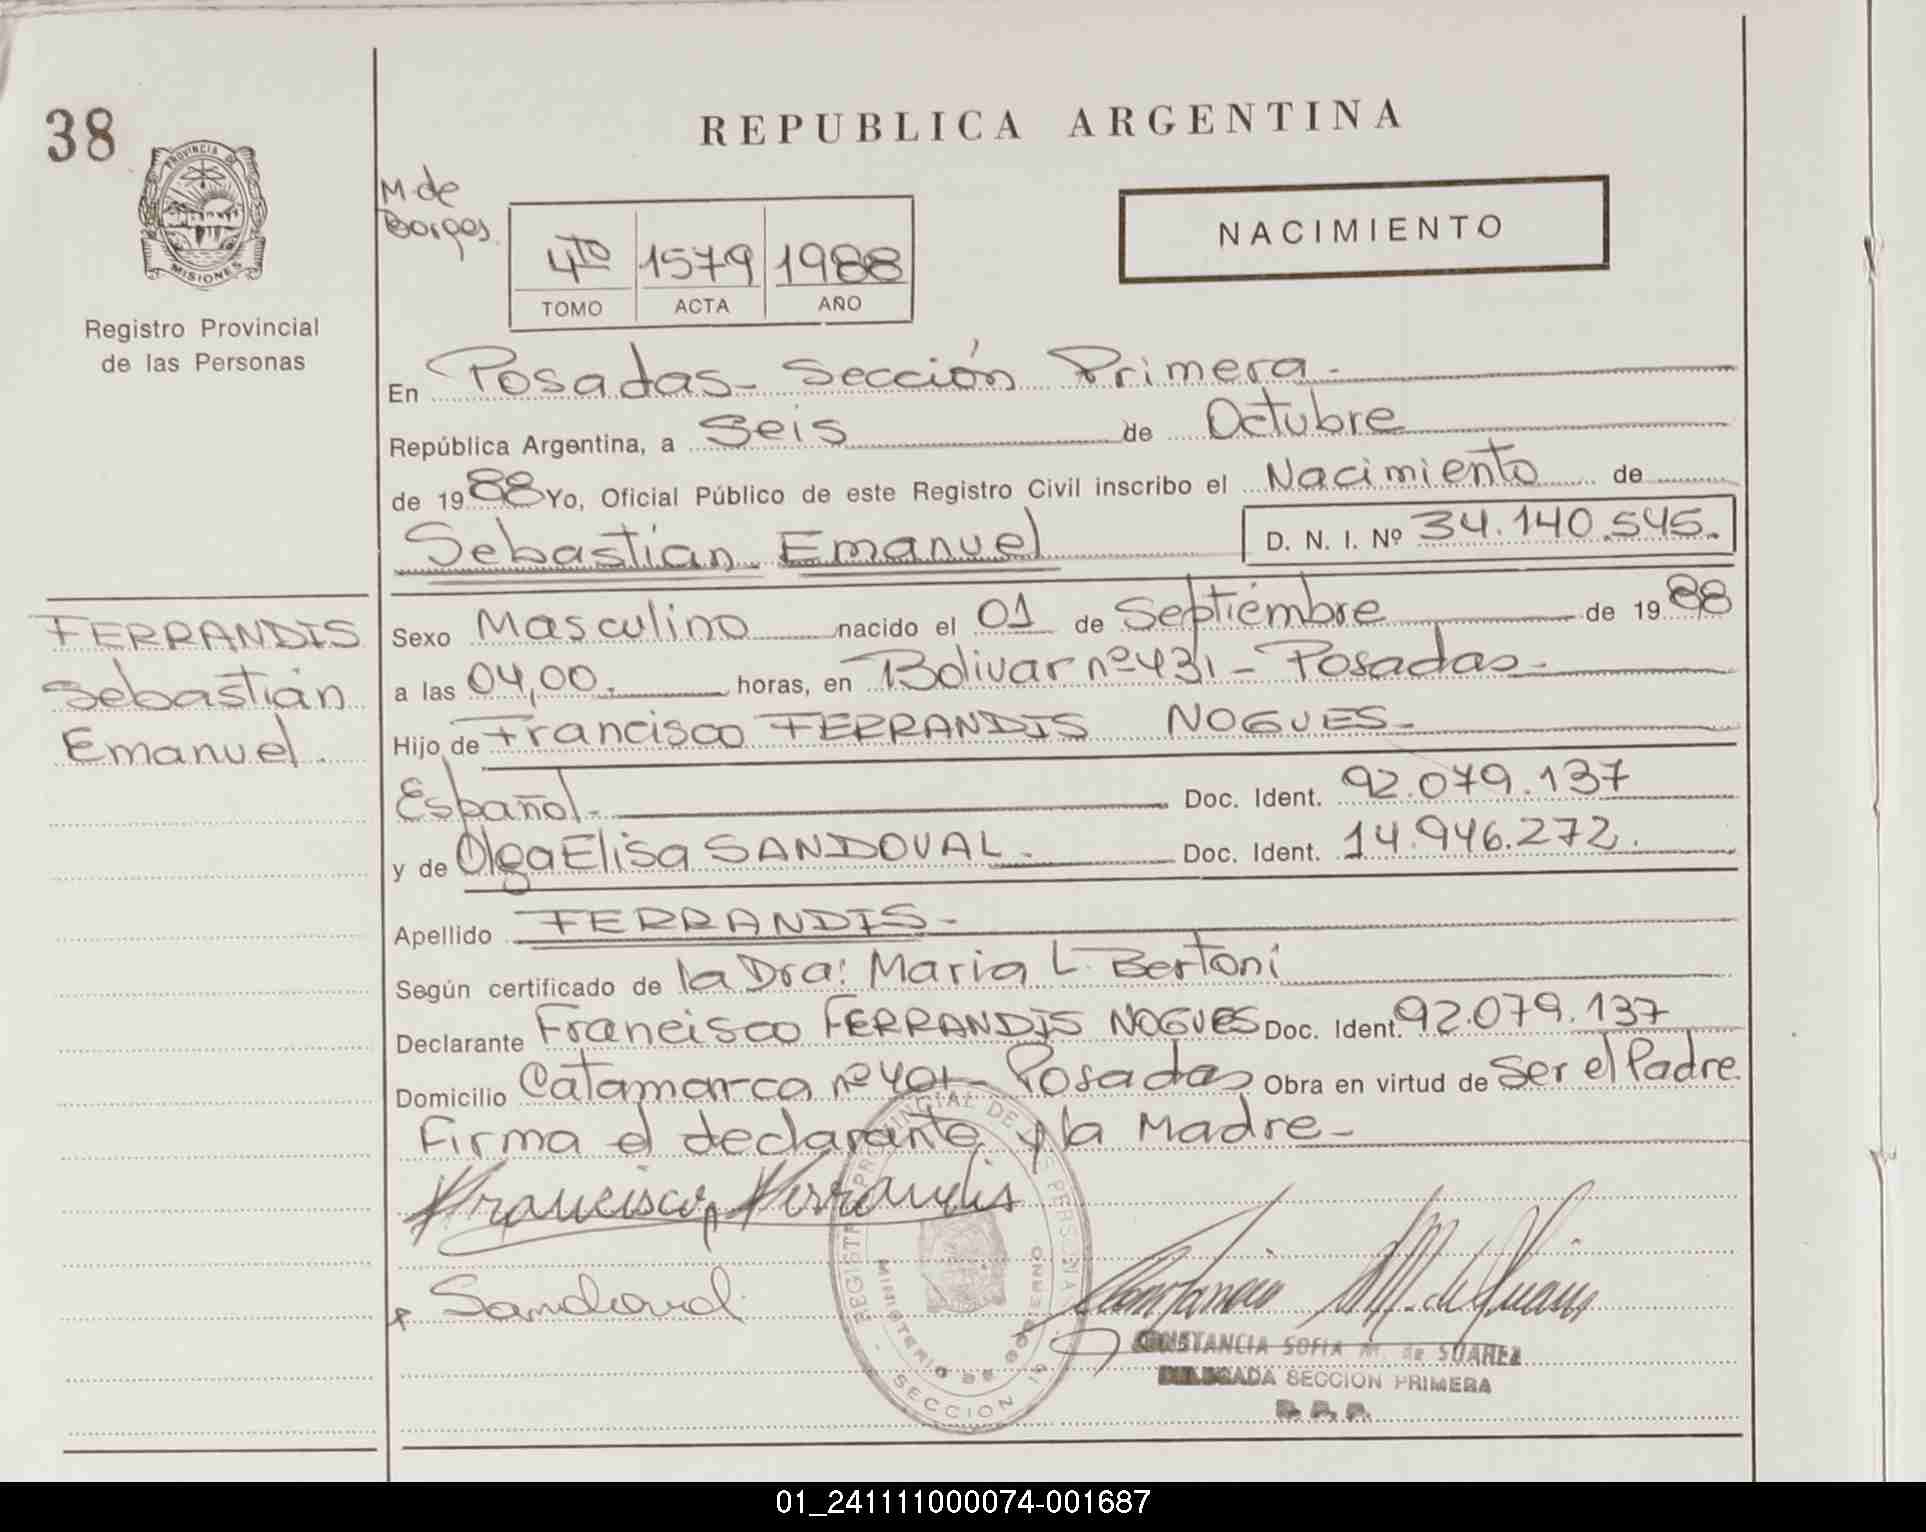 38
PROVINCIA DE
MISIONES
Registro Provincial
de las Personas
REPUBLICA ARGENTINA
M. de
Borges.
4TO 1579 1988
TOMO ACTA AÑO
NACIMIENTO
En Posadas - Sección Primera -
República Argentina, a Seis de Octubre
de 1988 Yo, Oficial Público de este Registro Civil inscribo el Nacimiento de
Sebastián Emanuel D. N. I. Nº 34.140.545.
FERRANDIS
Sebastián
Emanuel.
Sexo Masculino nacido el 01 de Septiembre de 1988
a las 04,00. horas, en Bolivar nº 431 - Posadas -
Hijo de Francisco FERRANDIS NOGUES -
Español - Doc. Ident. 92.079.137
y de Olga Elisa SANDOVAL - Doc. Ident. 14.946.272.
Apellido FERRANDIS -
Según certificado de la Dra: Maria L. Bertoni
Declarante Francisco FERRANDIS NOGUES Doc. Ident. 92.079.137
Domicilio Catamarca nº 401 - Posadas Obra en virtud de Ser el Padre
Firma el declarante y la Madre -
Francisco Ferrandis
Sandoval
REGISTRO PROVINCIAL DE LAS PERSONAS
MINISTERIO DE GOBIERNO
SECCION 1ª
CONSTANCIA SOFIA M. de SUAREZ
DELEGADA SECCION PRIMERA
R. P. P.
01_241111000074-001687